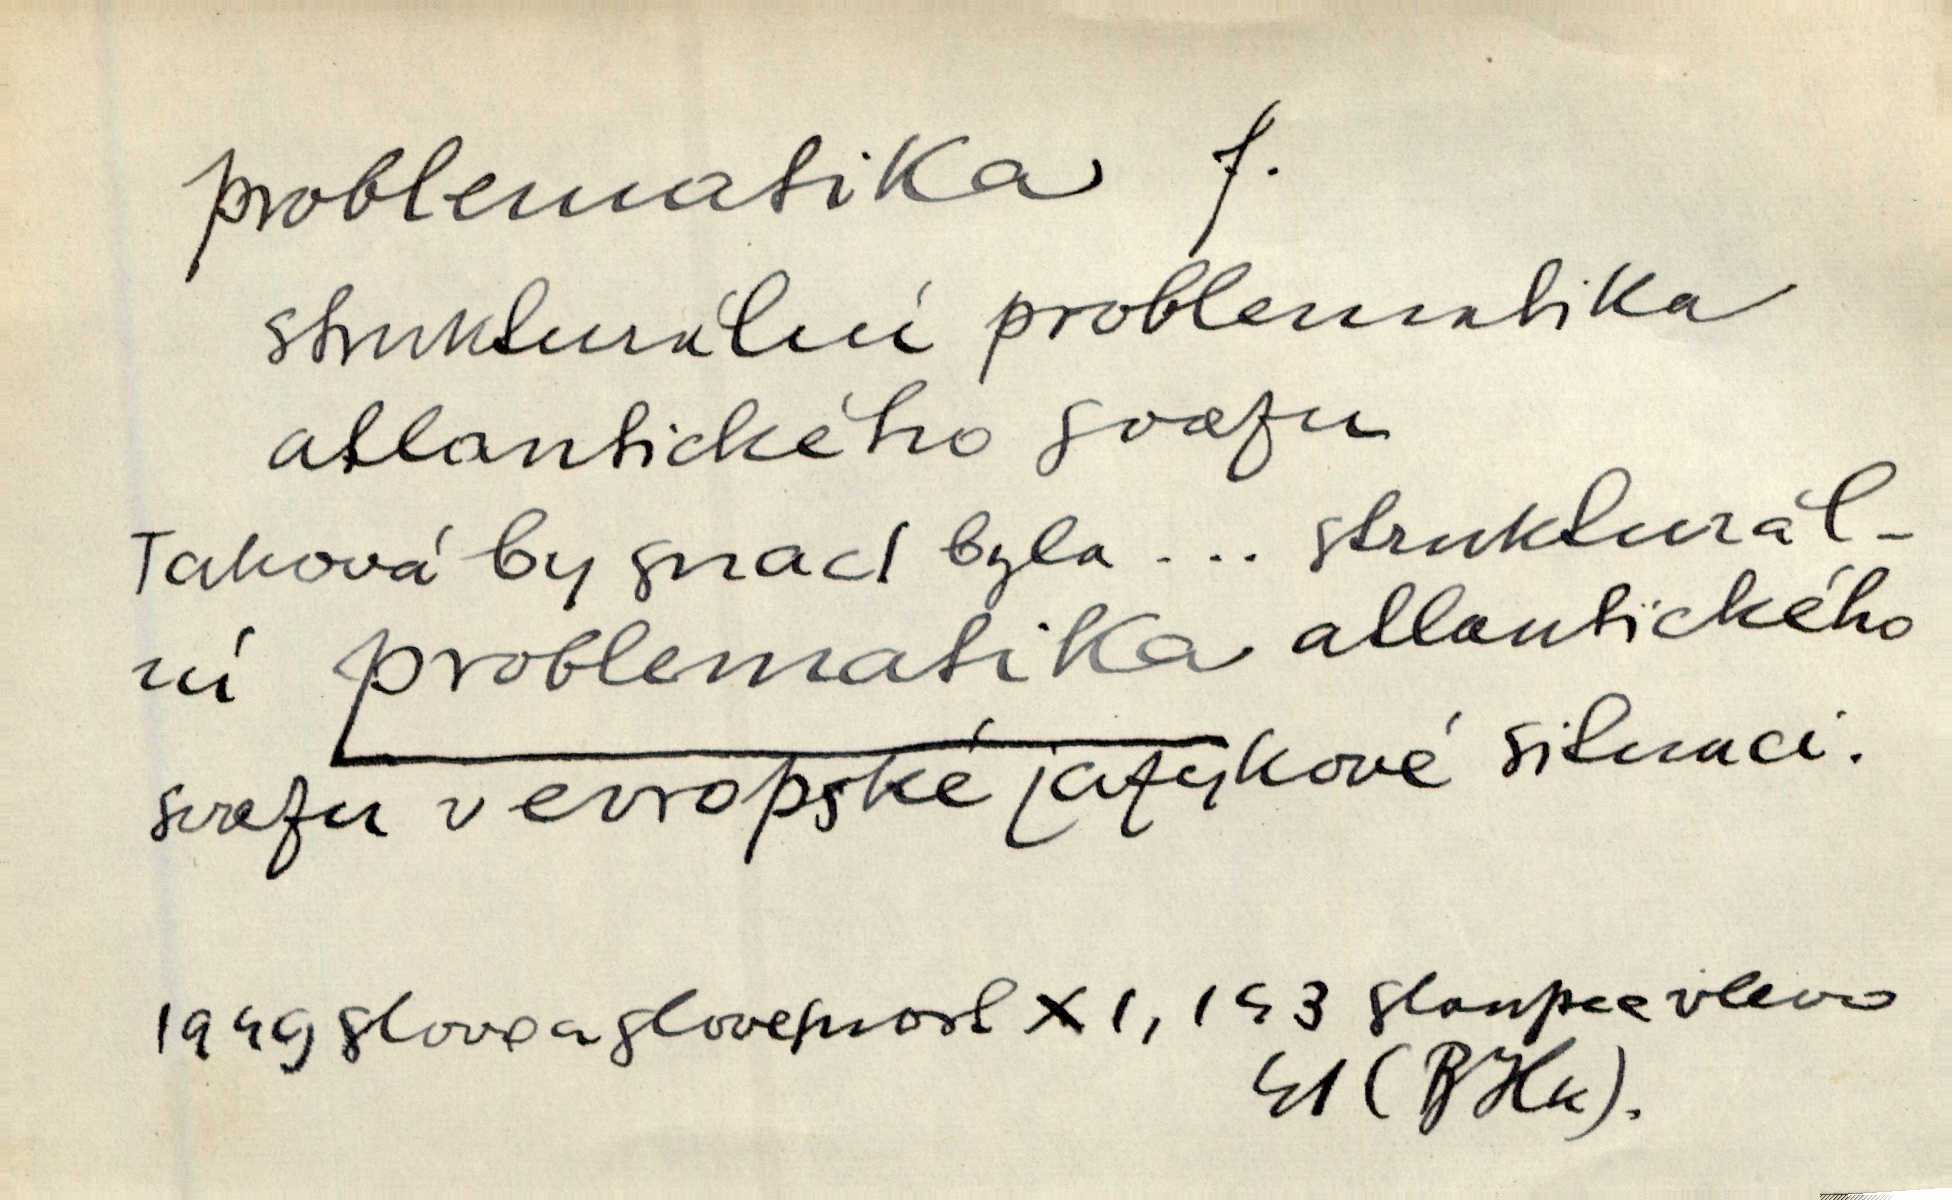 problematika f.
strukturální problematika
atlantického svazu
Taková by snad byla ... strukturál-
ní problematika atlantického
svazu v evropské jazykové situaci.
1949 Slovo a slovesnost XI, 143 sloupce vlevo
41 (BHk).